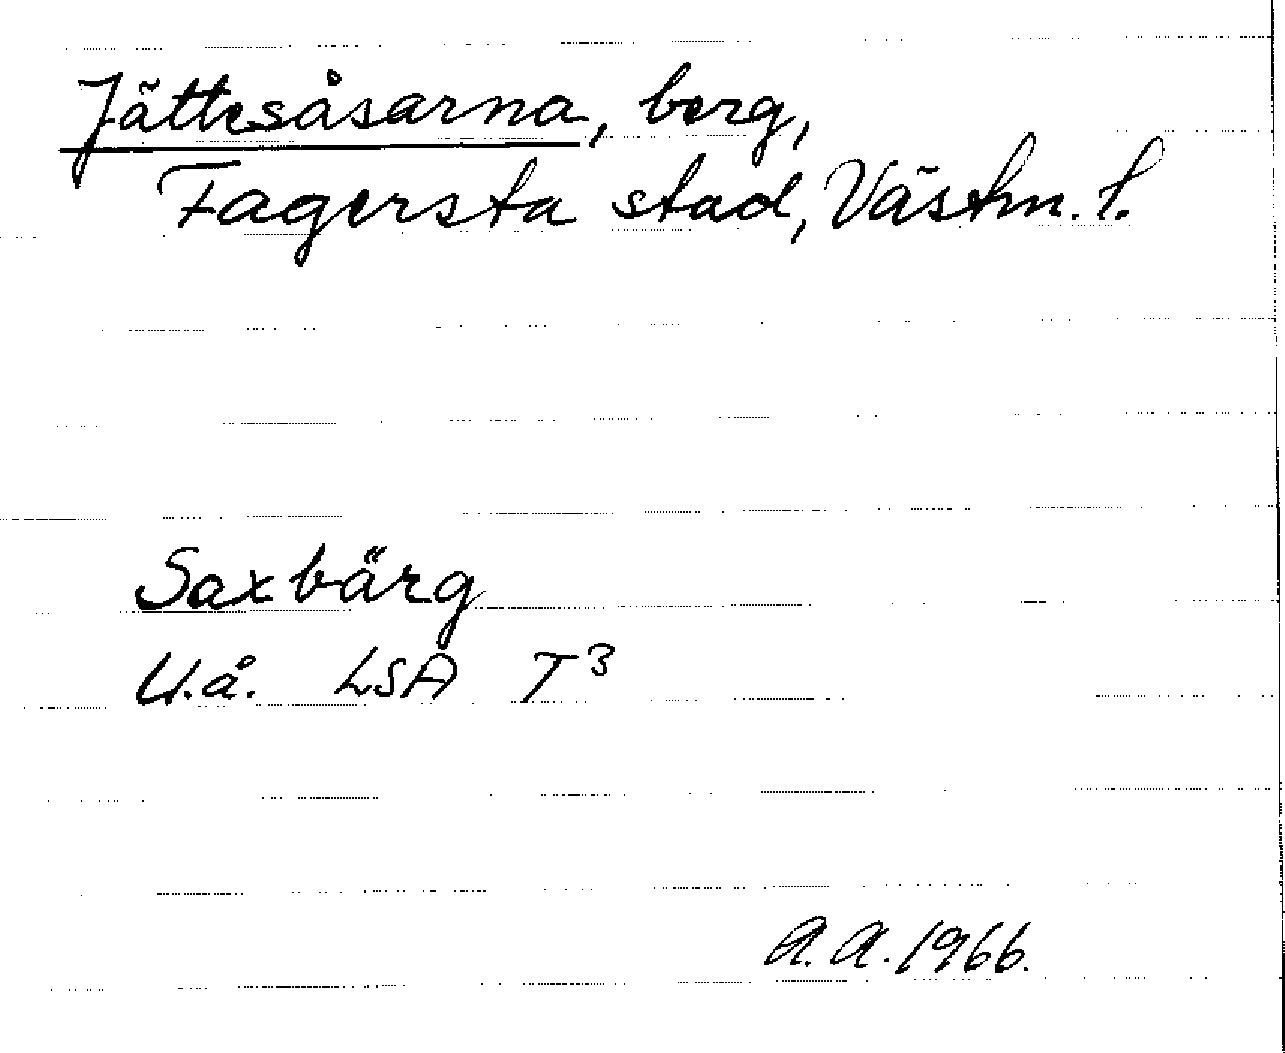 Jättesåsarna, berg,
Fagersta stad, Västm. l.
Saxbärg
U.å. LSA T³
A.A. 1966.